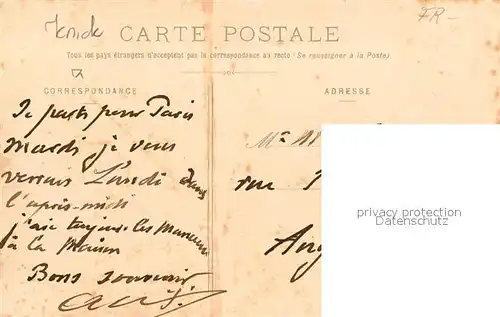 CARTE POSTALE
Tous les pays étrangers n'acceptent pas la correspondance au recto (Se renseigner à la Poste)
CORRESPONDANCE
ADRESSE
Je pars pour Paris
Mardi je vous
verrais Lundi dans
l'après-midi
j'aie toujours les
à la Maison
Bons souvenir
rue
privacy protection
Datenschutz